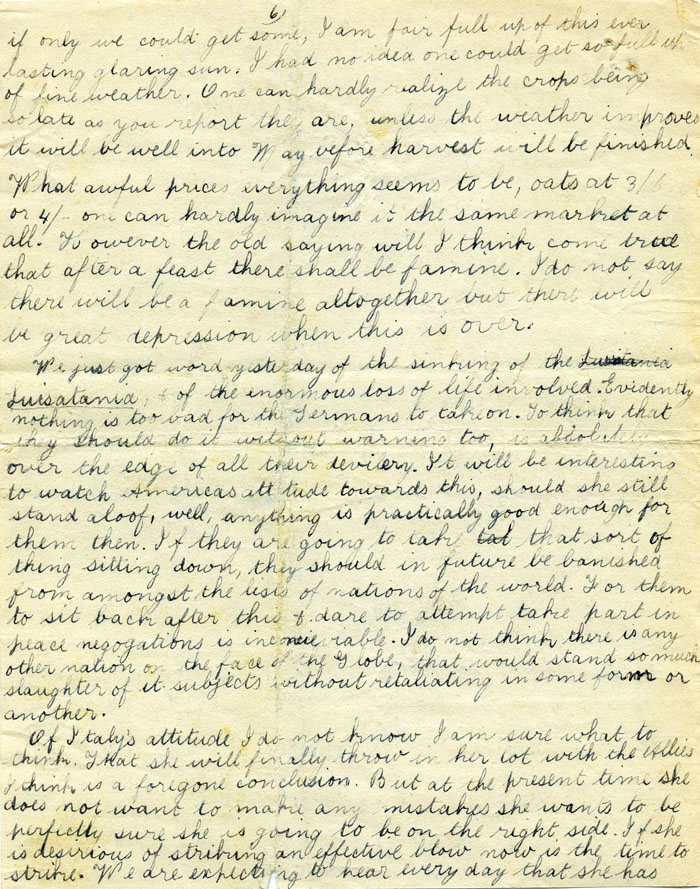 6
if only we could get some, I am fair full up of this ever
lasting glaring sun. I had no idea one could get so full up
of fine weather. One can hardly realize the crops being
so late as you report they are, unless the weather improves
it will be well into May before harvest will be finished.
What awful prices everything seems to be, oats at 3/6
or 4/- one can hardly imagine it the same market at
all. However the old saying will I think come true
that after a feast there shall be famine. I do not say
there will be a famine altogether but there will
be great depression when this is over.
We just got word yesterday of the sinking of the Lusitania
Luisatania, & of the enormous loss of life involved. Evidently
nothing is too bad for the Germans to take on. To think that
they should do it without warning too, is absolutely
over the edge of all their devilery. It will be interesting
to watch Americas attitude towards this, should she still
stand aloof, well, anything is practically good enough for
them then. If they are going to take tat that sort of
thing sitting down, they should in future be banished
from amongst the lists of nations of the world. For them
to sit back after this & dare to attempt take part in
peace negogations is rable. I do not think there is any
other nation on the face of the Globe, that would stand so much
slaughter of it subjects without retaliating in some form or
another.
Of Italy's attitude I do not know I am sure what to
think. That she will finally throw in her lot with the Allies
I think is a foregone conclusion. But at the present time she
does not want to make any mistakes she wants to be
perfectly sure she is going to be on the right side. If she
is desirious of striking an effective blow now is the time to
strike. We are expecting to hear every day that she has